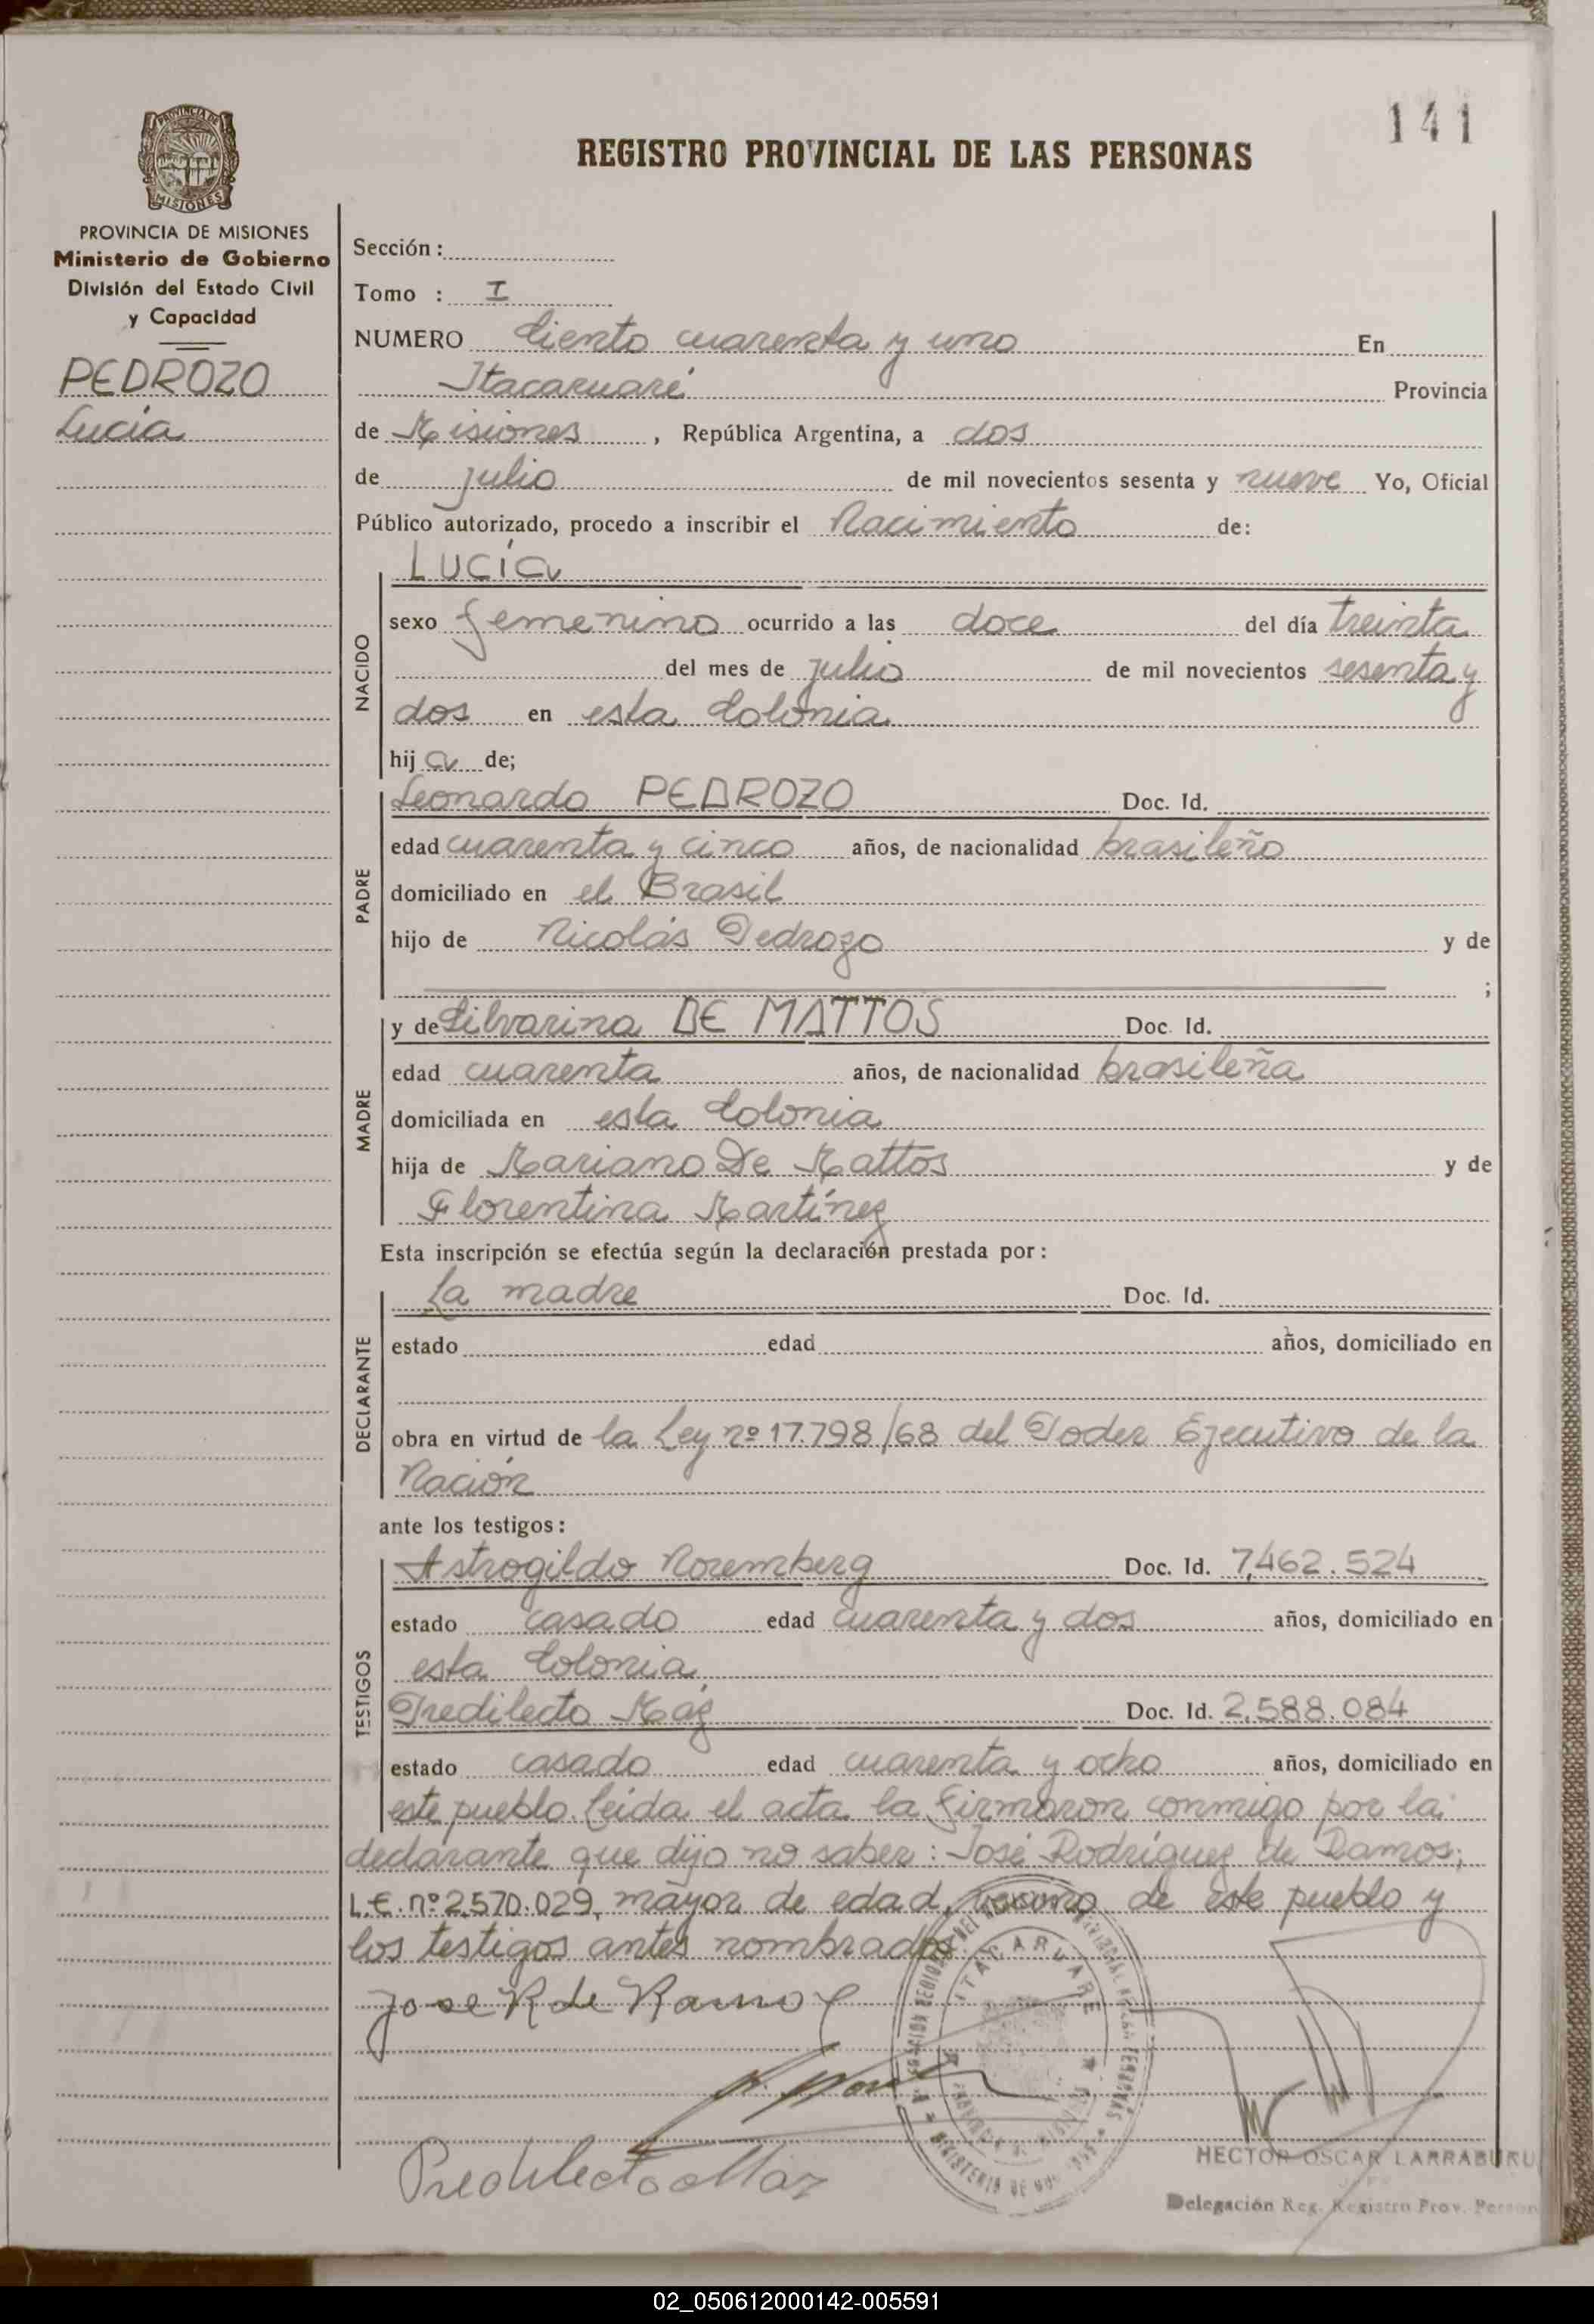 141
REGISTRO PROVINCIAL DE LAS PERSONAS
PROVINCIA DE MISIONES
PROVINCIA DE MISIONES
Ministerio de Gobierno
División del Estado Civil
y Capacidad
PEDROZO
Lucía
Sección :
Tomo : I
NUMERO Ciento cuarenta y uno En
Itacaruaré Provincia
de Misiones , República Argentina, a dos
de julio de mil novecientos sesenta y nueve Yo, Oficial
Público autorizado, procedo a inscribir el Nacimiento de:
NACIDO
LUCÍA
sexo femenino ocurrido a las doce del día treinta
del mes de julio de mil novecientos sesenta y
dos en esta Colonia
hij a de;
PADRE
Leonardo PEDROZO Doc. Id.
edad cuarenta y cinco años, de nacionalidad brasileño
domiciliado en el Brasil
hijo de Nicolás Pedrozo y de
;
MADRE
y de Silvarina DE MATTOS Doc. Id.
edad cuarenta años, de nacionalidad brasileña
domiciliada en esta Colonia
hija de Mariano De Mattos y de
Florentina Martínez
Esta inscripción se efectúa según la declaración prestada por:
DECLARANTE
La madre Doc. Id.
estado edad años, domiciliado en
obra en virtud de la Ley nº 17.798/68 del Poder Ejecutivo de la
Nación
ante los testigos:
TESTIGOS
Astrogildo Noremberg Doc. Id. 7,462.524
estado casado edad cuarenta y dos años, domiciliado en
esta Colonia
Predilecto Máz Doc. Id. 2.588.084
estado casado edad cuarenta y ocho años, domiciliado en
este pueblo. Leída el acta la firmaron conmigo por la
declarante que dijo no saber: José Rodríguez de Ramos,
L.E. nº 2.570.029, mayor de edad, vecino de este pueblo y
los testigos antes nombrados.
ITACARUARE
Jose R de Ramos
Predilecto Maz
HECTOR OSCAR LARRABURU
JEFE
Delegación Reg. Registro Prov. Person
02_050612000142-005591